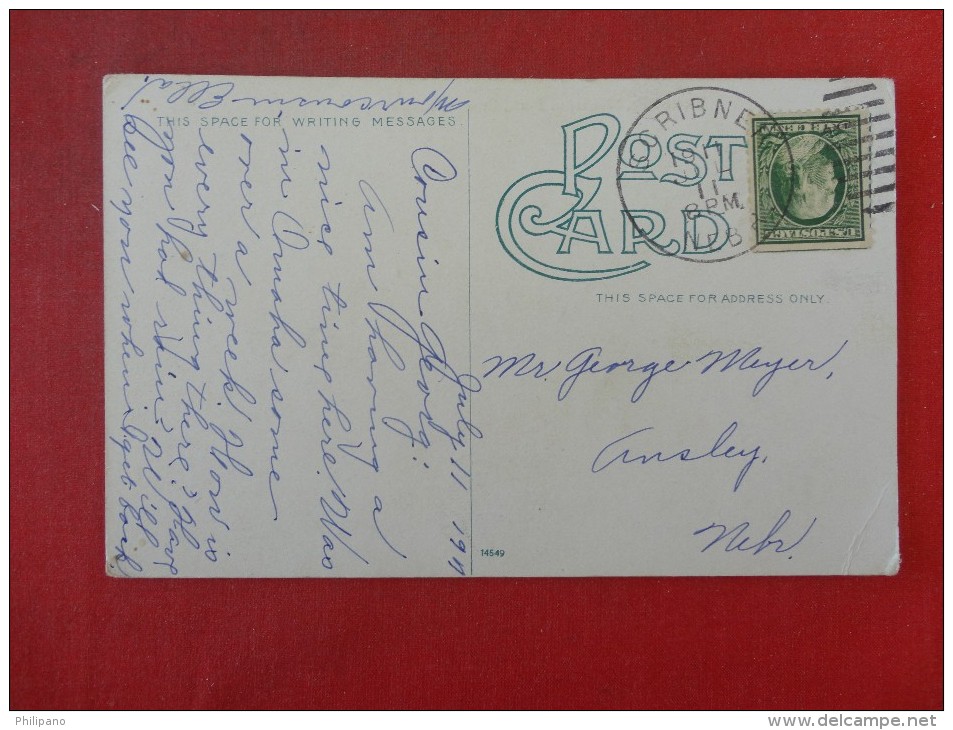 THIS SPACE FOR WRITING MESSAGES
POST CARD
THIS SPACE FOR ADDRESS ONLY.
SCRIBNER
11
8 PM.
NEBR
July 11 1911
Cousin Georg:
Am having a
nice time here. Was
in Omaha some
over a week. How is
every thing there? Have
you had rain? Will
see you when I get back
Your cousin Ella.
Mr. George Meyer,
Ansley,
Nebr.
14549
Philipano
www.delcampe.net